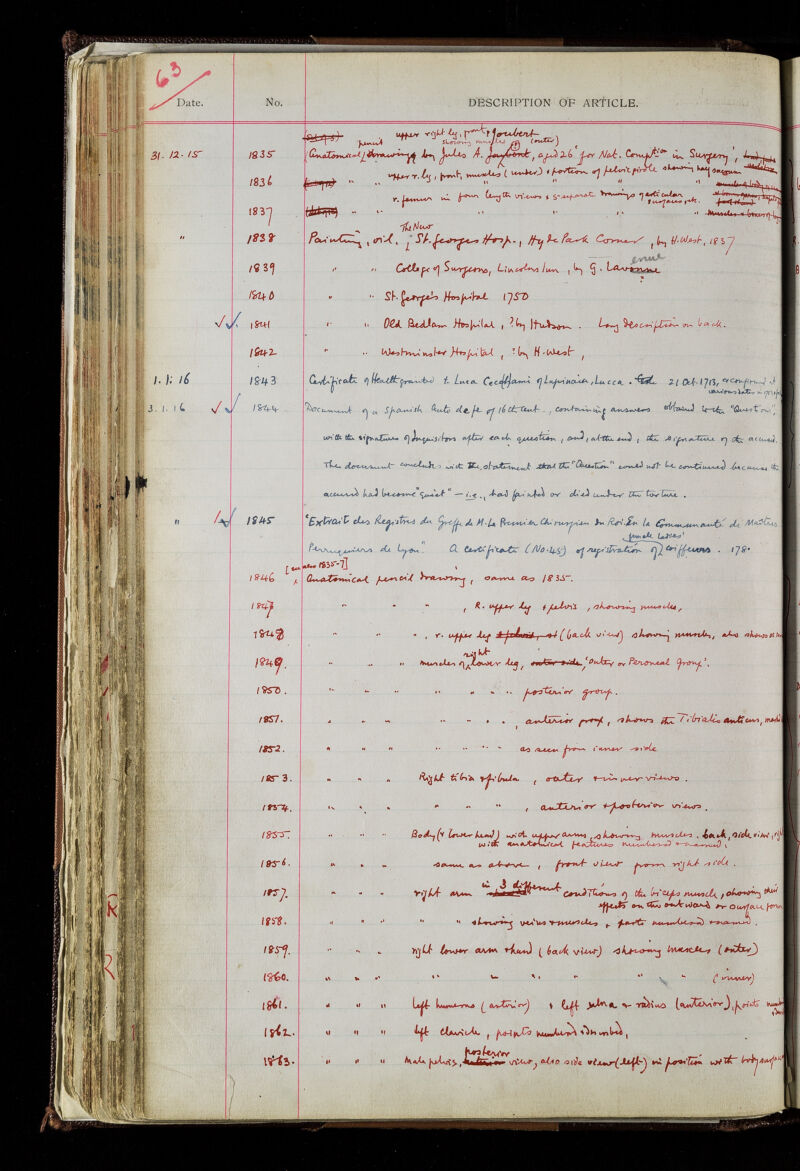 63
Date. No. DESCRIPTION OF ARTICLE.
upper right leg, front + Joubert
pencil showing muscles (outer)
31.12.15 1835 (Anatomical) drawing by Jules A. aged 26 for Nat. Compt^n in Surgery,
1836 " " upper r. leg, front, muscles (under) + portion of pelvic girdle showing half sacrum
1837 " " r. femur in four length views + separate drawings of articular surfaces, etc.
The New
" 1838 Painting, oil, St. Georges Hosp., Hyde Park Corner, by H. West, 1837
1839 " " College of Surgeons, Lincolns Inn, by G. Lavenue
1840 " " St. George's Hospital 1750
1841 " " Old Bedlam Hospital, ? by Hudson. Long description on back.
1842 " " Westminster Hospital, ? by H. West,
1.1.16 1843 Certificate of Health granted to Luca of Lucca. 21 Oct. 1713,
various dates
3.1.16 1844 Document of a Spanish Auto de fe of 16th cent., containing answers obtained to the "Question",
with the signatures of Inquisitors after each question, and, at the end, the signature of the accused.
The document concludes with the statement that the "Question" could not be continued because the
accused had become "quiet" – i.e., had fainted or died under the torture.
" 1845 "Extrait des Registres du Greffe de M. Le Premier Chirurgien du Roi. En la Communauté de Maitres
Perruquiers de Lyon." A certificate (No. 45) of registration of female ladies' coiffeurs. 178
[see also 1835-7]
1846 Anatomical pencil drawing, same as 1835.
1847 " " " , R. upper leg + pelvis, showing muscles,
1848 " " " , r. upper leg + pelvis, (back view) showing muscles, also shows
1849. " " " muscles of right lower leg, outer side, 'Outer or Peroneal group'.
1850. " " " " " " posterior group.
1851. " " " " " " , anterior group, shows the Tibialis anticus,
1852. " " " " " " as seen from inner side
1853. " " " Right tibia + fibula, outer + inner views.
1854. " " " " " " , anterior + posterior views.
1855. " " " Body (+ lower head) with upper arms, showing muscles. back, side view,
with anatomical features numbered + named.
1856. " " " same as above, front view from right side.
1857. " " " right arm in 3 different conditions of the biceps muscle, showing their
effects on the outward or surface form
1858. " " " " " showing veins + muscles + parts numbered + named.
1859. " " " right lower arm + hand (back view) showing muscles (outer)
1860. " " " " " " " " " (inner)
1861. " " " left humerus (anterior) + left ulna + radius (anterior), points
1862. " " " left clavicle, points numbered + described,
posterior
1863. " " " Male pelvis, anterior view, also side view (left) in position with body